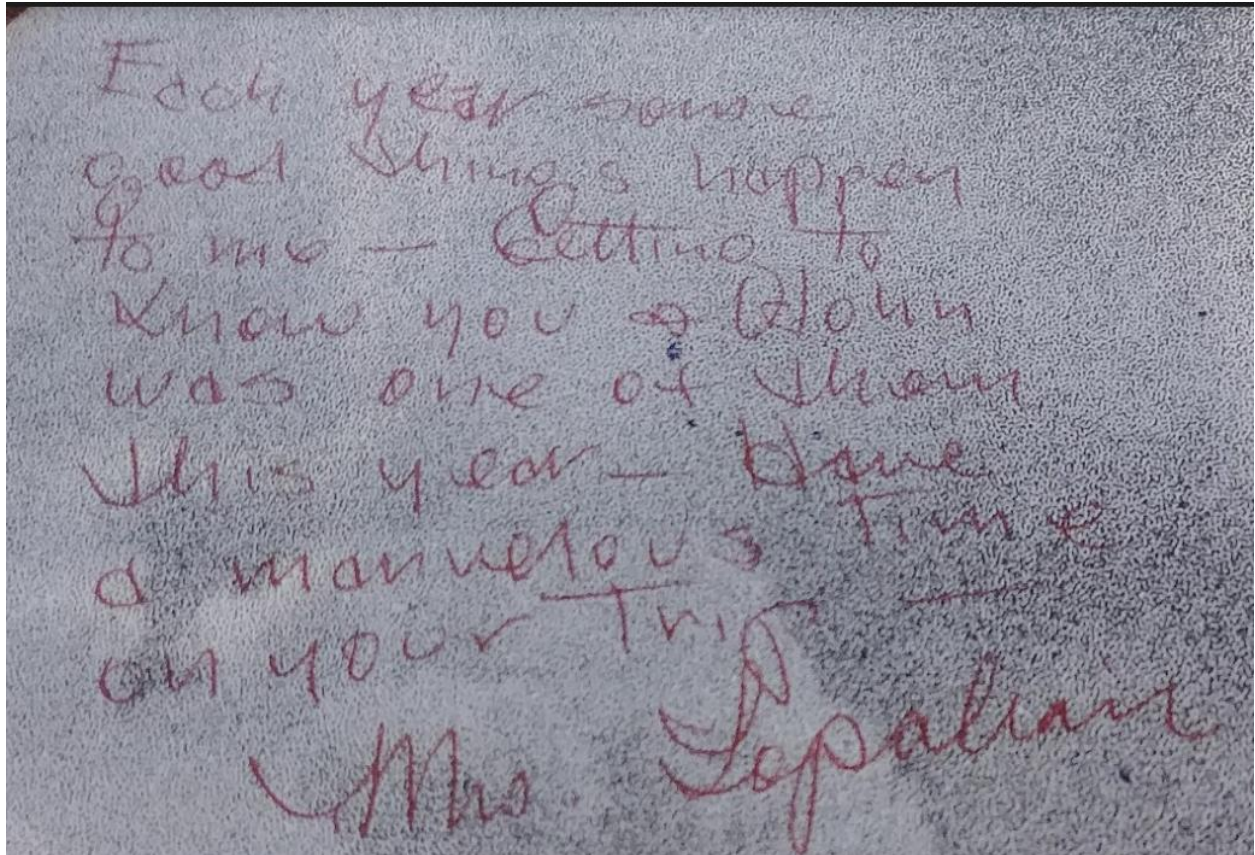 Each year some
good things happen
to me — Getting to
know you & John
was one of them
This year — Have
a marvelous Time
on your Trip —
Mrs.